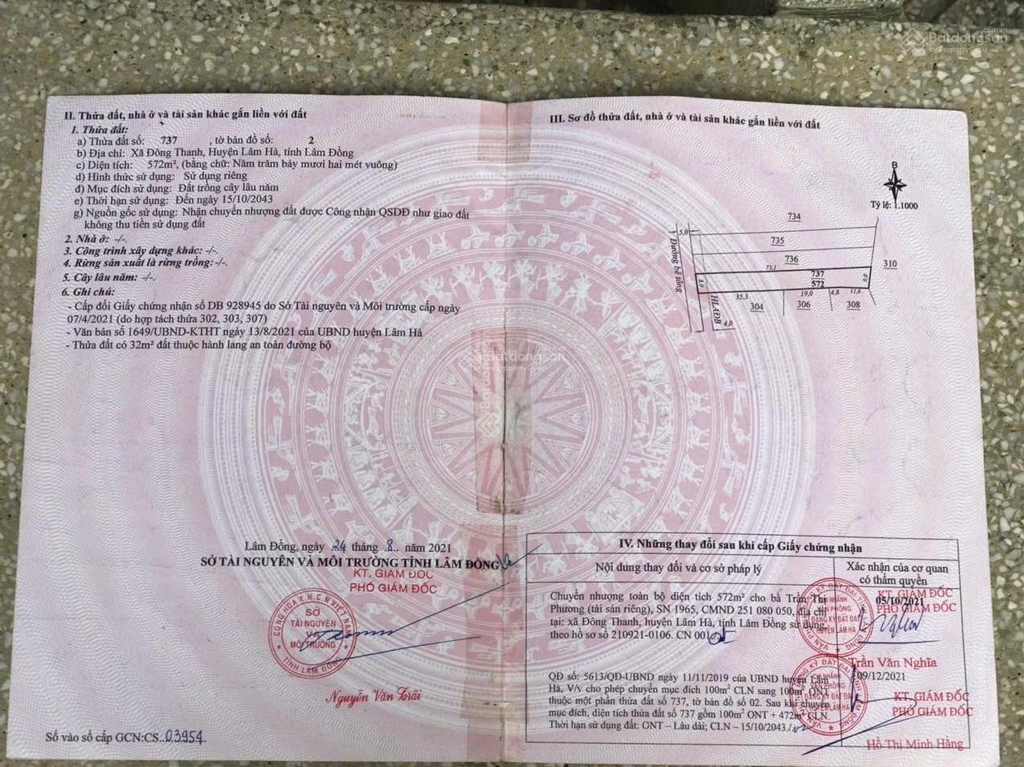 Batdongsan
by PropertyGuru
II. Thửa đất, nhà ở và tài sản khác gắn liền với đất
1. Thửa đất:
a) Thửa đất số: 737 , tờ bản đồ số: 2
b) Địa chỉ: Xã Đông Thanh, Huyện Lâm Hà, tỉnh Lâm Đồng
c) Diện tích: 572m², (bằng chữ: Năm trăm bảy mươi hai mét vuông)
d) Hình thức sử dụng: Sử dụng riêng
đ) Mục đích sử dụng: Đất trồng cây lâu năm
e) Thời hạn sử dụng: Đến ngày 15/10/2043
g) Nguồn gốc sử dụng: Nhận chuyển nhượng đất được Công nhận QSDĐ như giao đất
không thu tiền sử dụng đất
2. Nhà ở: -/-.
3. Công trình xây dựng khác: -/-.
4. Rừng sản xuất là rừng trồng: -/-.
5. Cây lâu năm: -/-.
6. Ghi chú:
- Cấp đổi Giấy chứng nhận số DB 928945 do Sở Tài nguyên và Môi trường cấp ngày
07/4/2021 (do hợp tách thửa 302, 303, 307)
- Văn bản số 1649/UBND-KTHT ngày 13/8/2021 của UBND huyện Lâm Hà
- Thửa đất có 32m² đất thuộc hành lang an toàn đường bộ
Lâm Đồng, ngày 24 tháng 8 năm 2021
SỞ TÀI NGUYÊN VÀ MÔI TRƯỜNG TỈNH LÂM ĐỒNG
KT. GIÁM ĐỐC
PHÓ GIÁM ĐỐC
CỘNG HÒA X.H.C.N VIỆT NAM
SỞ
TÀI NGUYÊN
VÀ
MÔI TRƯỜNG
TỈNH LÂM ĐỒNG
Nguyễn Văn Trãi
Số vào sổ cấp GCN:CS..03954.
III. Sơ đồ thửa đất, nhà ở và tài sản khác gắn liền với đất
B
Tỷ lệ: 1.1000
734
5.0
735
736
310
73.1
737
572
Đường bê tông
HLATĐB
35.3
19.0
4.8
11.6
304
306
308
4.0
Batdongsan
by PropertyGuru
IV. Những thay đổi sau khi cấp Giấy chứng nhận
Nội dung thay đổi và cơ sở pháp lý
Xác nhận của cơ quan
có thẩm quyền
Chuyển nhượng toàn bộ diện tích 572m² cho bà Trần Thị
Phương (tài sản riêng), SN 1965, CMND 251 080 050, địa chỉ
tại: xã Đông Thanh, huyện Lâm Hà, tỉnh Lâm Đồng sử dụng,
theo hồ sơ số 210921-0106. CN 001
05/10/2021
KT. GIÁM ĐỐC
PHÓ GIÁM ĐỐC
Trần Văn Nghĩa
QĐ số: 5613/QĐ-UBND ngày 11/11/2019 của UBND huyện Lâm
Hà, V/v cho phép chuyển mục đích 100m² CLN sang 100m² ONT
thuộc một phần thửa đất số 737, tờ bản đồ số 02. Sau khi chuyển
mục đích, diện tích thửa đất số 737 gồm 100m² ONT + 472m² CLN.
Thời hạn sử dụng: ONT – Lâu dài; CLN – 15/10/2043
09/12/2021
KT. GIÁM ĐỐC
PHÓ GIÁM ĐỐC
Hồ Thị Minh Hằng